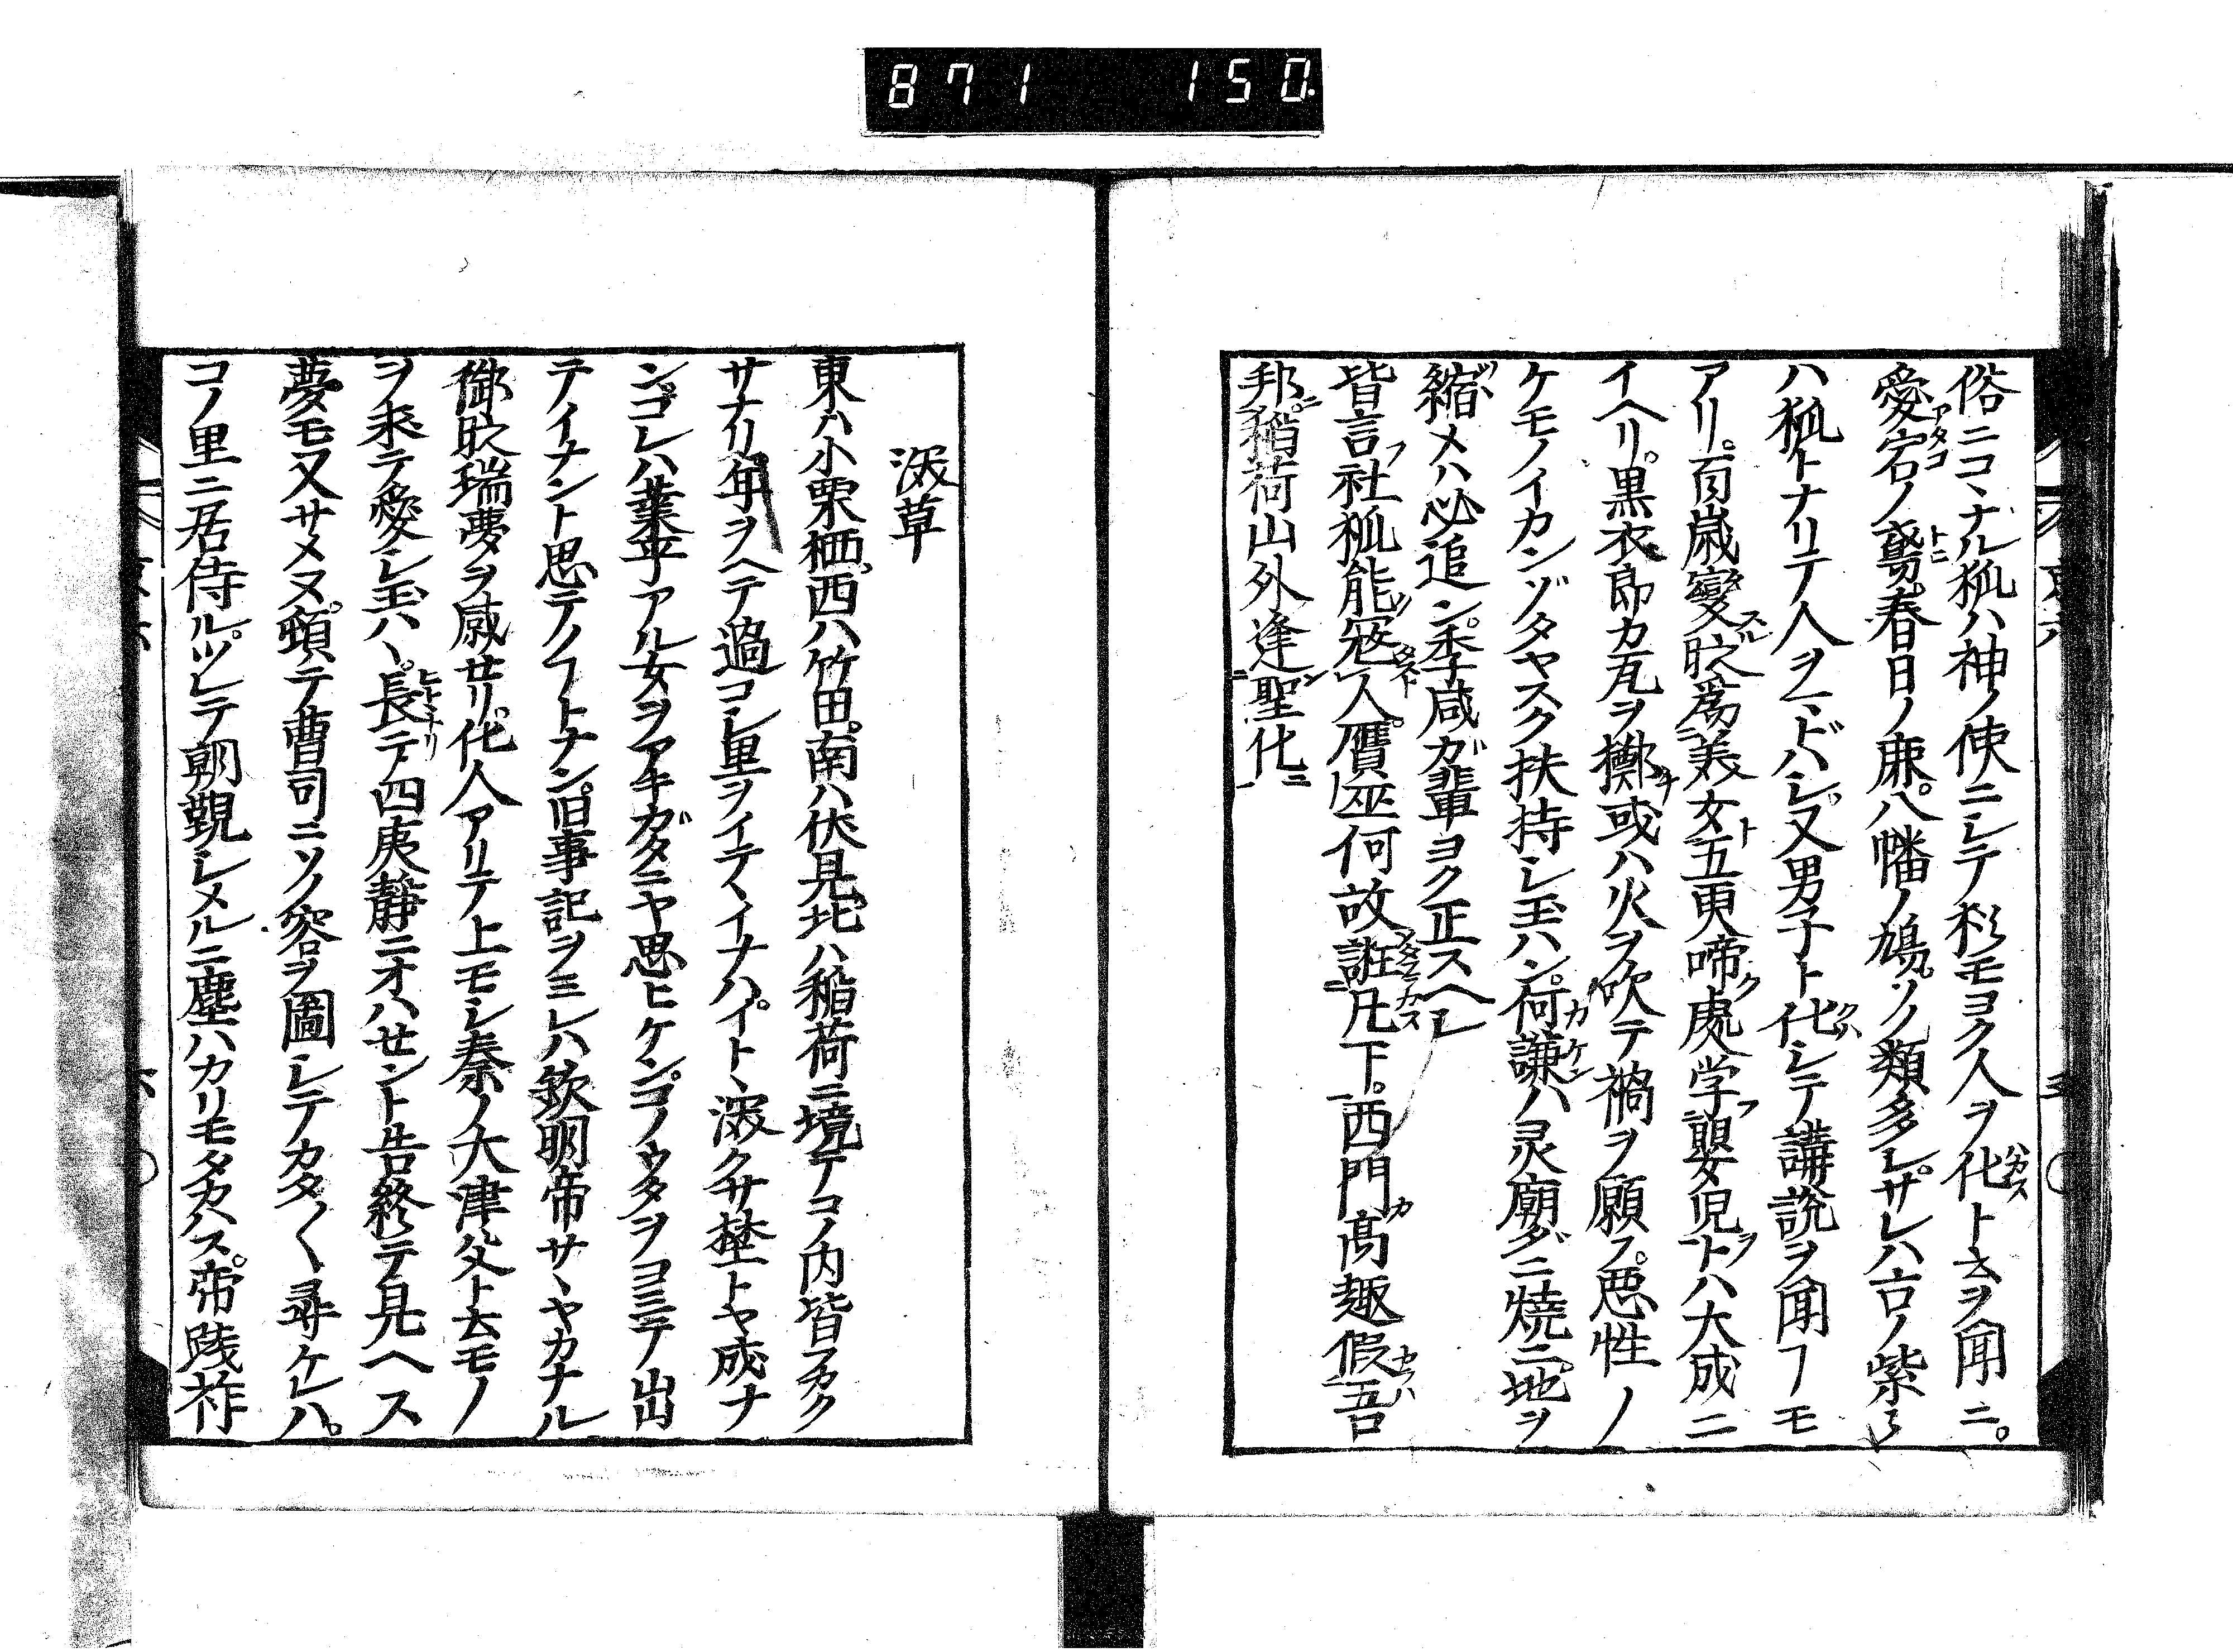 871 150
俗ニコヽナル狐ハ神ノ使ニシテ杉モヨク人ヲ化ト云ヲ聞ニ。
愛宕ノ鵄。春日ノ鹿。八幡ノ鳩。ソノ類多シ。サレハ古ノ紫
ハ狐トナリテ人ヲマドハシ。又男子ト化シテ講説ヲ聞フモ
アリ。百歳變シ為美女ト五更啼ク處学フ嬰児ヲトハ大成ニ
イヘリ。黒衣郎カ瓦ヲ擲チ或ハ火ヲ吹テ禍ヲ願フ。悪性ノ
ケモノイカンゾタヤスク扶持シ玉ハン。何謙ハ灵廟ダニ焼ニ。地ヲ
縮メハ必追ン。季咸ガ輩ヨク正スヘシ
皆言フ社狐能冦人。贋巫何故誑凡下。西門高趣假吾
邦。稲荷山外逢聖化ニ
深草
東ハ小栗栖。西ハ竹田。南ハ伏見。北ハ稲荷ニ境テコノ内皆フカク
サナリ。年ヲヘテ過コシ里ヲイテヽイナハ。イトヽ深クサ埜トヤ成ナ
ン。コレハ業平アル女ヲアキガタニヤ思ヒケン。コノウタヲヨミテ出
テイナント思テノフトナン。旧事記ヲミレハ欽明帝サヽヤカナル
御時瑞夢ヲ感セリ。化人アリテ上モシ秦ノ大津父ト云モノ
ヲ求テ愛シ玉ハヽ。長テ四夷静ニオハセント告終テ見ヘス
夢モ又サメヌ。頓テ曹司ニソノ容ヲ圖シテカタ〱尋ケレハ。
コノ里ニ居侍ル。ツレテ朝覲シメルニ塵ハカリモタカハス。帝踐祚